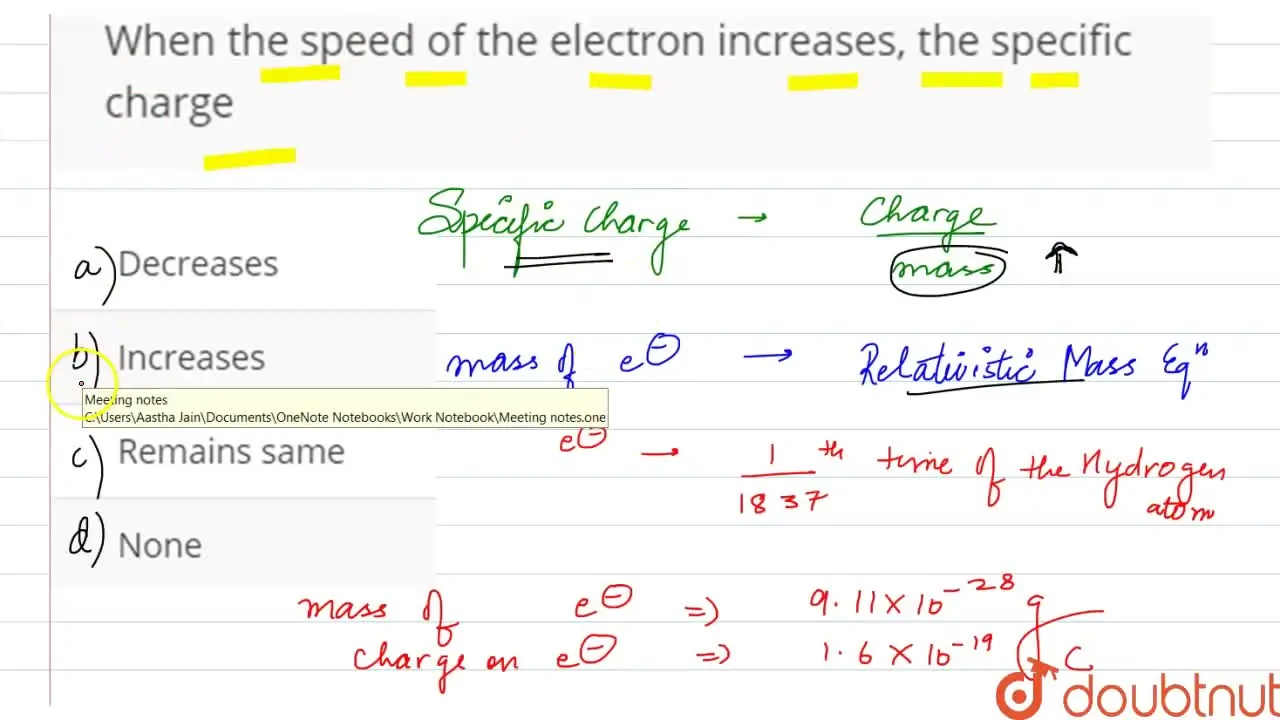 When the speed of the electron increases, the specific
charge
Specific charge → Charge
mass ↑
a) Decreases
b) Increases
mass of e⊖ → Relativistic Mass Eqⁿ
Meeting notes
C:\Users\Aastha Jain\Documents\OneNote Notebooks\Work Notebook\Meeting notes.one
c) Remains same
e⊖ → 1/1837 th time of the Hydrogen
atom
d) None
mass of e⊖ => 9.11 × 10⁻²⁸ g
charge on e⊖ => 1.6 × 10⁻¹⁹ C
doubtnut